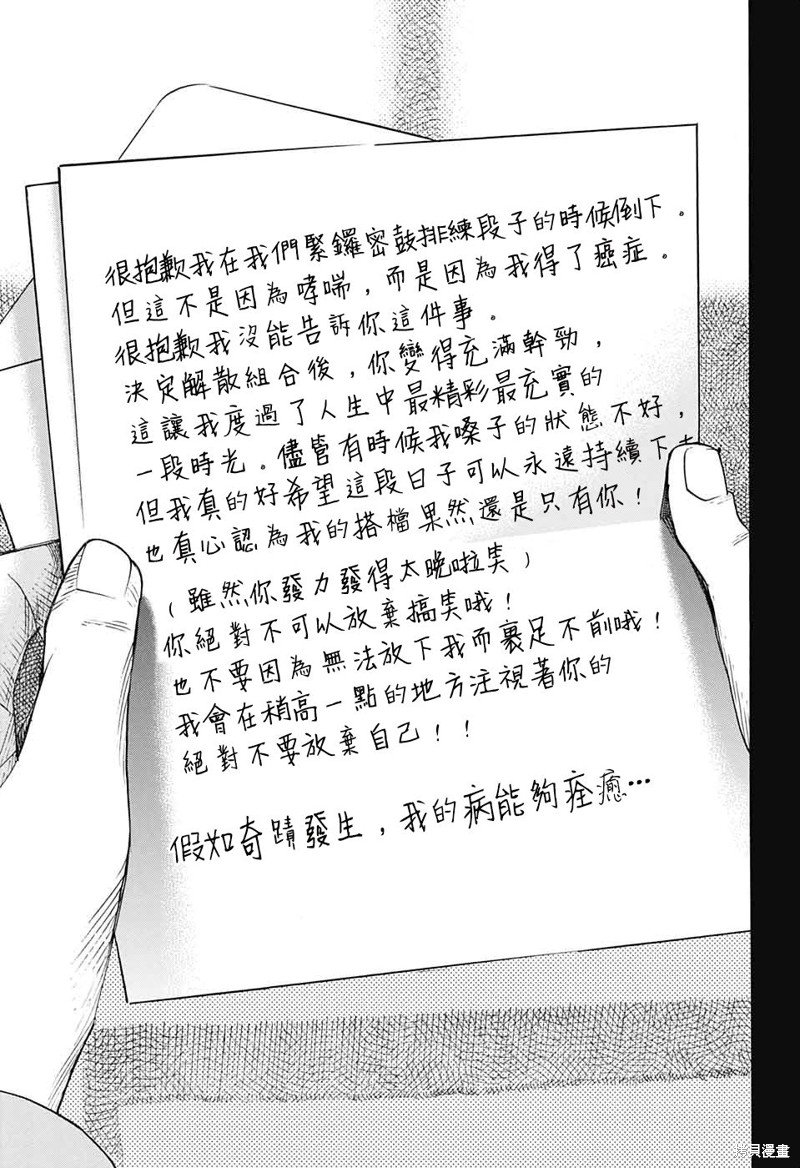 很抱歉我在我們緊鑼密鼓排練段子的時候倒下。
但這不是因為哮喘，而是因為我得了癌症。
很抱歉我沒能告訴你這件事。
決定解散組合後，你變得充滿幹勁，
這讓我度過了人生中最精彩最充實的
一段時光。儘管有時候我嗓子的狀態不好，
但我真的好希望這段日子可以永遠持續下去，
也真心認為我的搭檔果然還是只有你！
（雖然你發力發得太晚啦笑）
你絕對不可以放棄搞笑哦！
也不要因為無法放下我而裹足不前哦！
我會在稍高一點的地方注視著你的
絕對不要放棄自己！！
假如奇蹟發生，我的病能夠痊癒…
拷貝漫畫